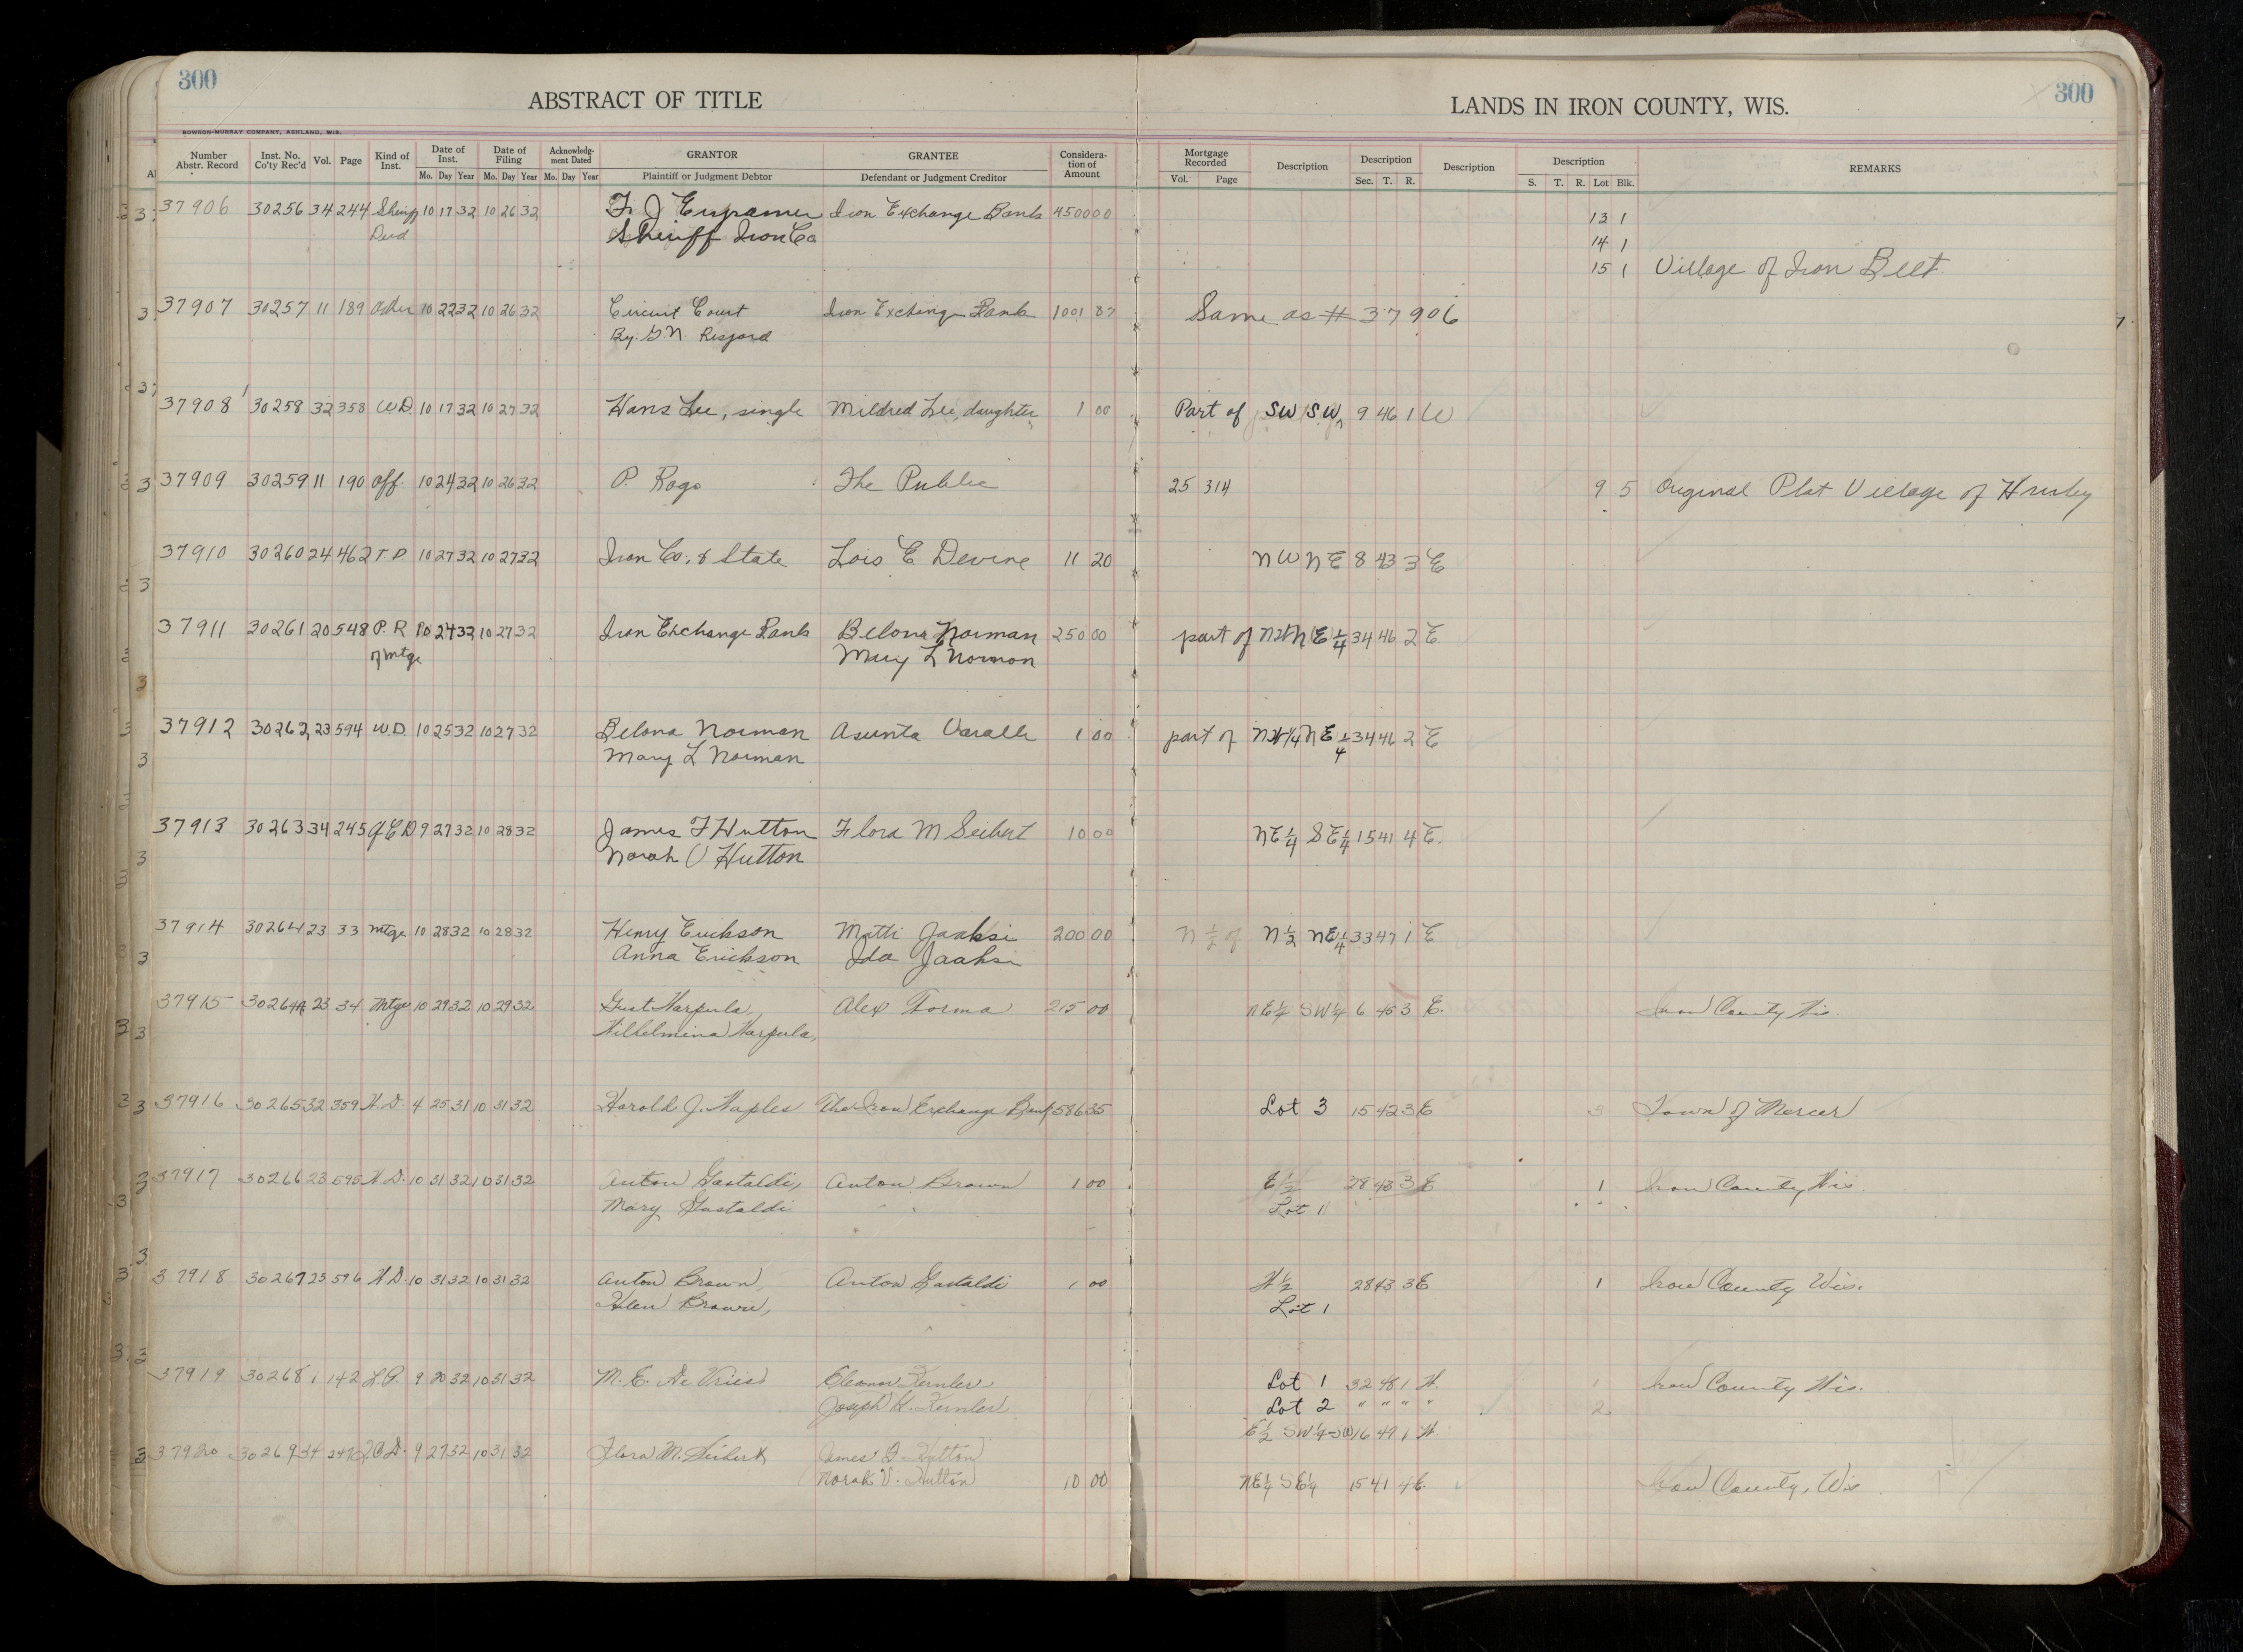 300
300
ABSTRACT OF TITLE
LANDS IN IRON COUNTY, WIS.
BOWSON-MURRAY COMPANY, ASHLAND, WIS.
Number Abstr. Record Inst. No. Co'ty Rec'd Vol. Page Kind of Inst. Date of Inst. Date of Filing Acknowledg-ment Dated GRANTOR GRANTEE Considera-tion of Amount Mortgage Recorded Description Description Description Description REMARKS
Mo. Day Year Mo. Day Year Mo. Day Year Plaintiff or Judgment Debtor Defendant or Judgment Creditor Vol. Page Sec. T. R. S. T. R. Lot Blk.
37906 30256 34 244 Sheriff 10 17 32 10 26 32 Iron Exchange Bank 4500 00 13 1
Deed Sheriff Iron Co 14 1
15 1 Village of Iron Belt
37907 30257 11 189 10 22 32 10 26 32 Circuit Court Iron Exchange Bank 1001 87 Same as # 37906
By. G.N. Risjord
37908 30258 32 358 W D 10 17 32 10 27 32 Hans Lee, single Mildred Lee, daughter 1 00 Part of SW SW 9 46 1 W
37909 30259 11 190 aff. 10 24 32 10 26 32 P. Rogo The Public 25 314 9 5 Original Plat Village of Hurley
37910 30260 24 462 T.D. 10 27 32 10 27 32 Iron Co. & State Lois E Devine 11 20 NW NE 8 43 3 E
37911 30261 20 548 P. R 10 24 32 10 27 32 Iron Exchange Bank Belona Norman 250 00 part of NW NE 1/4 34 46 2 E.
of mtge Mary L Norman
37912 30262 23 594 W.D. 10 25 32 10 27 32 Belona Norman Asunta Varalle 1 00 part of NW 1/4 NE 1/4 34 46 2 E
Mary L Norman
37913 30263 34 245 Q C D 9 27 32 10 28 32 James F Hutton Flora M Seibert 10 00 NE 1/4 SE 1/4 15 41 4 E.
Norah V Hutton
37914 30264 23 33 mtge 10 28 32 10 28 32 Henry Erickson Matti Jaaksi 200 00 N 1/2 of N 1/2 NE 1/4 33 47 1 E
Anna Erickson Ida Jaaksi
37915 30264A 23 34 Mtge 10 29 32 10 29 32 Gust Harpula, Alex Torma 215 00 NE 1/4 SW 1/4 6 45 3 E. Iron County Wis.
Wilhelmina Harpula,
37916 30265 32 359 W.D. 4 25 31 10 31 32 Harold J. Naples The Iron Exchange Bank 586 35 Lot 3 15 42 3 E 3 Town of Mercer
37917 30266 23 595 W.D. 10 31 32 10 31 32 Anton Gastaldi, Anton Brown 1 00 E 1/2 28 43 3 E 1 Iron County, Wis
Mary Gastaldi Lot 1
37918 30267 23 596 W.D. 10 31 32 10 31 32 Anton Brown, Anton Gastaldi 1 00 W 1/2 28 43 3 E 1 Iron County Wis.
Helen Brown, Lot 1
37919 30268 1 142 L.P. 9 20 32 10 31 32 M. E. De Vries Eleanor Lot 1 32 48 1 W. 1 Iron County Wis.
Joseph H. Lot 2 " " " " 2
E 1/2 SW 1/4 SW 16 47 1 W
37920 30269 34 247 Q.C.D. 9 27 32 10 31 32 Flora M. Seibert James F. Hutton
Norah V. Hutton 10 00 NE 1/4 SE 1/4 15 41 4 E. Iron County, Wis